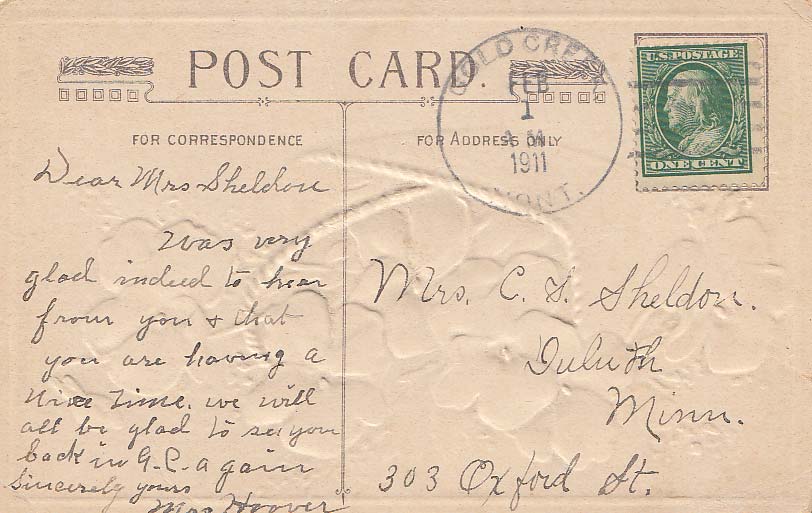 POST CARD.
FOR CORRESPONDENCE
FOR ADDRESS ONLY
GOLD CREEK
FEB
1
A.M.
1911
MONT.
U.S. POSTAGE
ONE CENT
Dear Mrs Sheldon
Was very
glad indeed to hear
from you & that
you are having a
nice time. we will
all be glad to see you
back in G.C. again
Sincerely yours
Mrs Hoover
Mrs. C. S. Sheldon.
Duluth
Minn.
303 Oxford St.